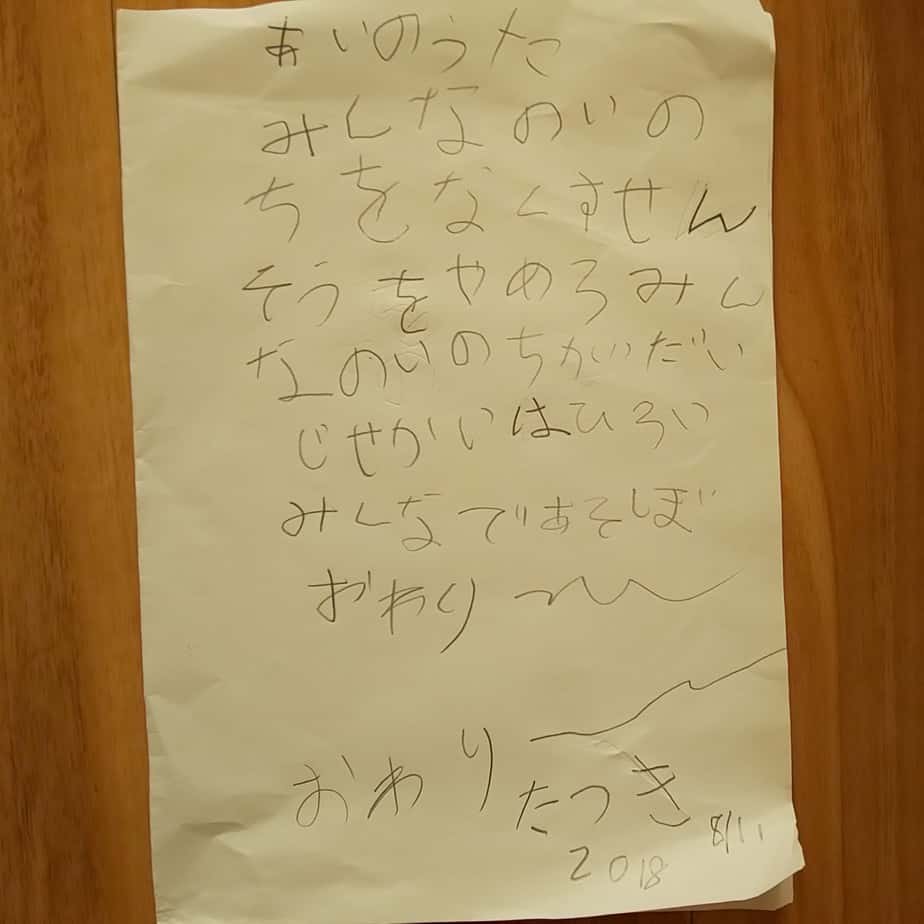 あいのうた
みんなのいの
ちをなくすせん
そうをやめろみん
なのいのちがいだい
じせかいはひろい
みんなであそぼ
おわり〜
おわり
たつき
8/11
2018